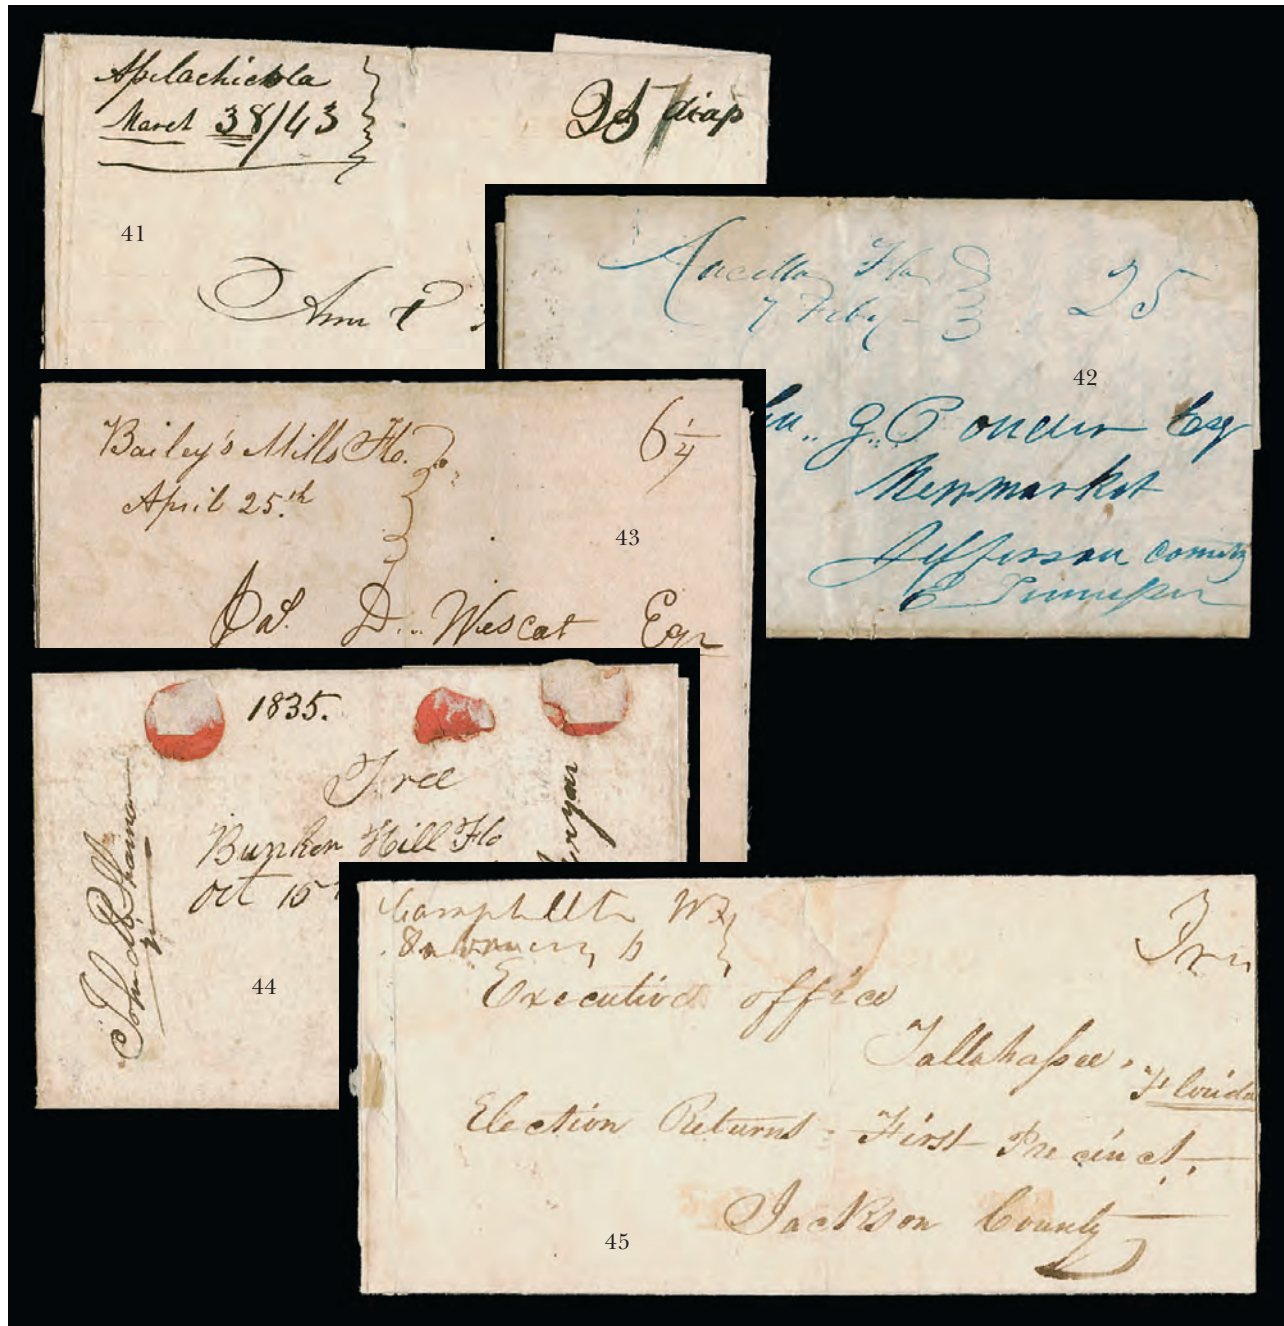 Apelachicola
March 38/43
25
41
Ann P
Aucilla Fla
7 Feby
25
42
G. Ponder Esq
Newmarket
Jefferson County
E
Bailey's Mills Flo.
April 25.th
6 1/4
43
D. Wescot Eqr
1835.
Free
Bunker Hill Flo
Oct 15
44
Campbellton
Free
Executive office
Tallahassee,
Florida
Election Returns - First Precinct,
Jackson County
45